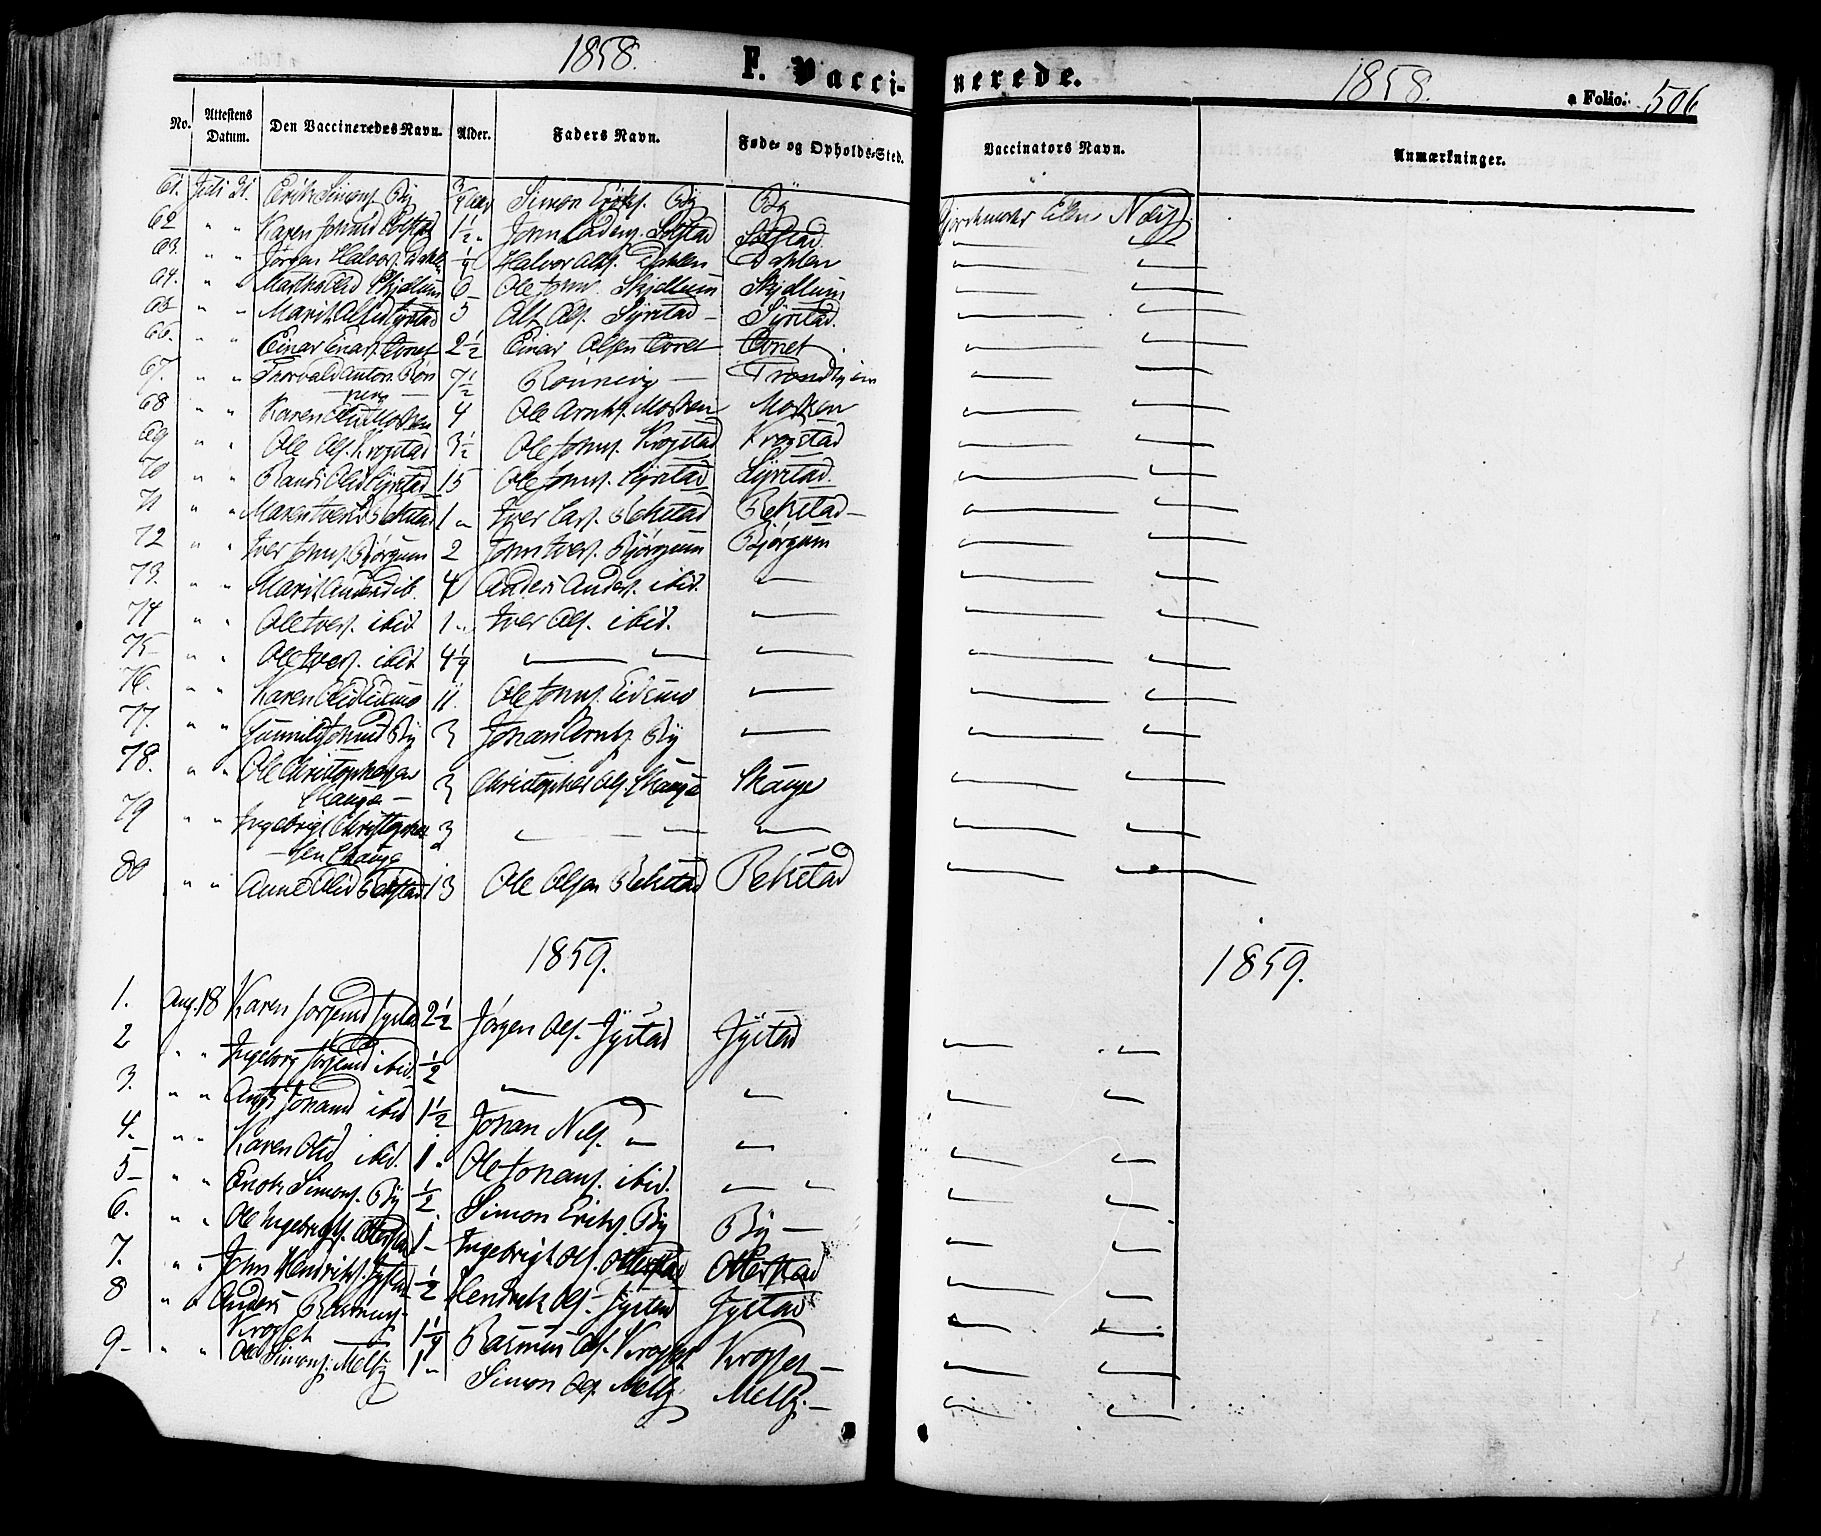 1858. F. Vacci- nerede. 1858. a Folio: 506
No. Attestens Datum. Den Vaccineredes Navn. Alder. Faders Navn. Føde- og Opholds-Sted. Vaccinators Navn. Anmærkninger.
61. Juli 21. Simons. By 3/4 Aar Simon Eriks. By By
62 " " Karen Johnsd Solstad 1 1/2 " John Solstad Solstad
63. " " Jørgen Halvors. Dahlen 1/4 Halvor Dahlen Dahlen
64. " " Olsd Skjellum 6 Ole Johns. Skjellum Skjellum
65 " " Marit Syrstad 5 Ols. Syrstad – Syrstad.
66. " " Einar Einars. Evnet 2 1/2 Einar Olsen Evnet
67. " " Thorvald Anton Røn
ning – 7 1/2 Rønning — Trondhjem
68 " " Karen Mosken 4 Ole Arnts. Mosken Mosken
69 " " Ole Ols. Krogstad 3 1/2 Ole Johns. Krogstad Krogstad
70 " " Randi Olsd Syrstad 15 Ole Johns. Syrstad Syrstad.
71 " " Maren Iversd Rekstad 1 " Iver Lars. Rekstad Rekstad –
72 " " Iver Johns. Bjørgum 2 John Ivers. Bjørgum Bjørgum
73. " " Marit Andersd ib. 4 Anders Anders. ibid. —
74 " " Ole Ivers. ibid 1 " Iver Ols. ibid. —
75 " " Ole Ivers. ibid 4 1/4 — — —
76. " " Karen Olsd Eidsmo 11. Ole Johns. Eidsmo —
77. " " Gunnild Johnsd By 3 Johan Arnts. By —
78. " " Ole Christophersen
Skauge – 3 Christopher Ols. Skauge Skauge
79 " " Ingebrigt Christopher
sen Skauge 3 — — —
80 " " Anne Olsd Rekstad 13 Ole Olsen Rekstad Rekstad
1859. 1859.
1. Aug. 18 Karen Jørgensd Jystad 2 1/2 Jørgen Ols. Jystad Jystad
2 " " Ingeborg Jørgensd ibid. 1/2 — —
3. " " Johansd ibid 1 1/2 Johan Nils. " —
4. " " Karen Olsd ibid. 1 " Ole Johans. ibid. — —
5 – " " Simons. By 1/2 Simon Eriks. By By —
6. " " Ole Ingebrigts. Otterstad 1 – Ingebrigt Ols. Otterstad Otterstad
7. " " John Hendriks. Jystad 1/2 Hendrik Ols. Jystad Jystad
8 " " Anders Rasmus.
Krogset 1 1/4 Rasmus Ols. Krogset Krogset –
9 – " " Ole Simons. Melby 1 " Simon Ols. Melby Melby. –